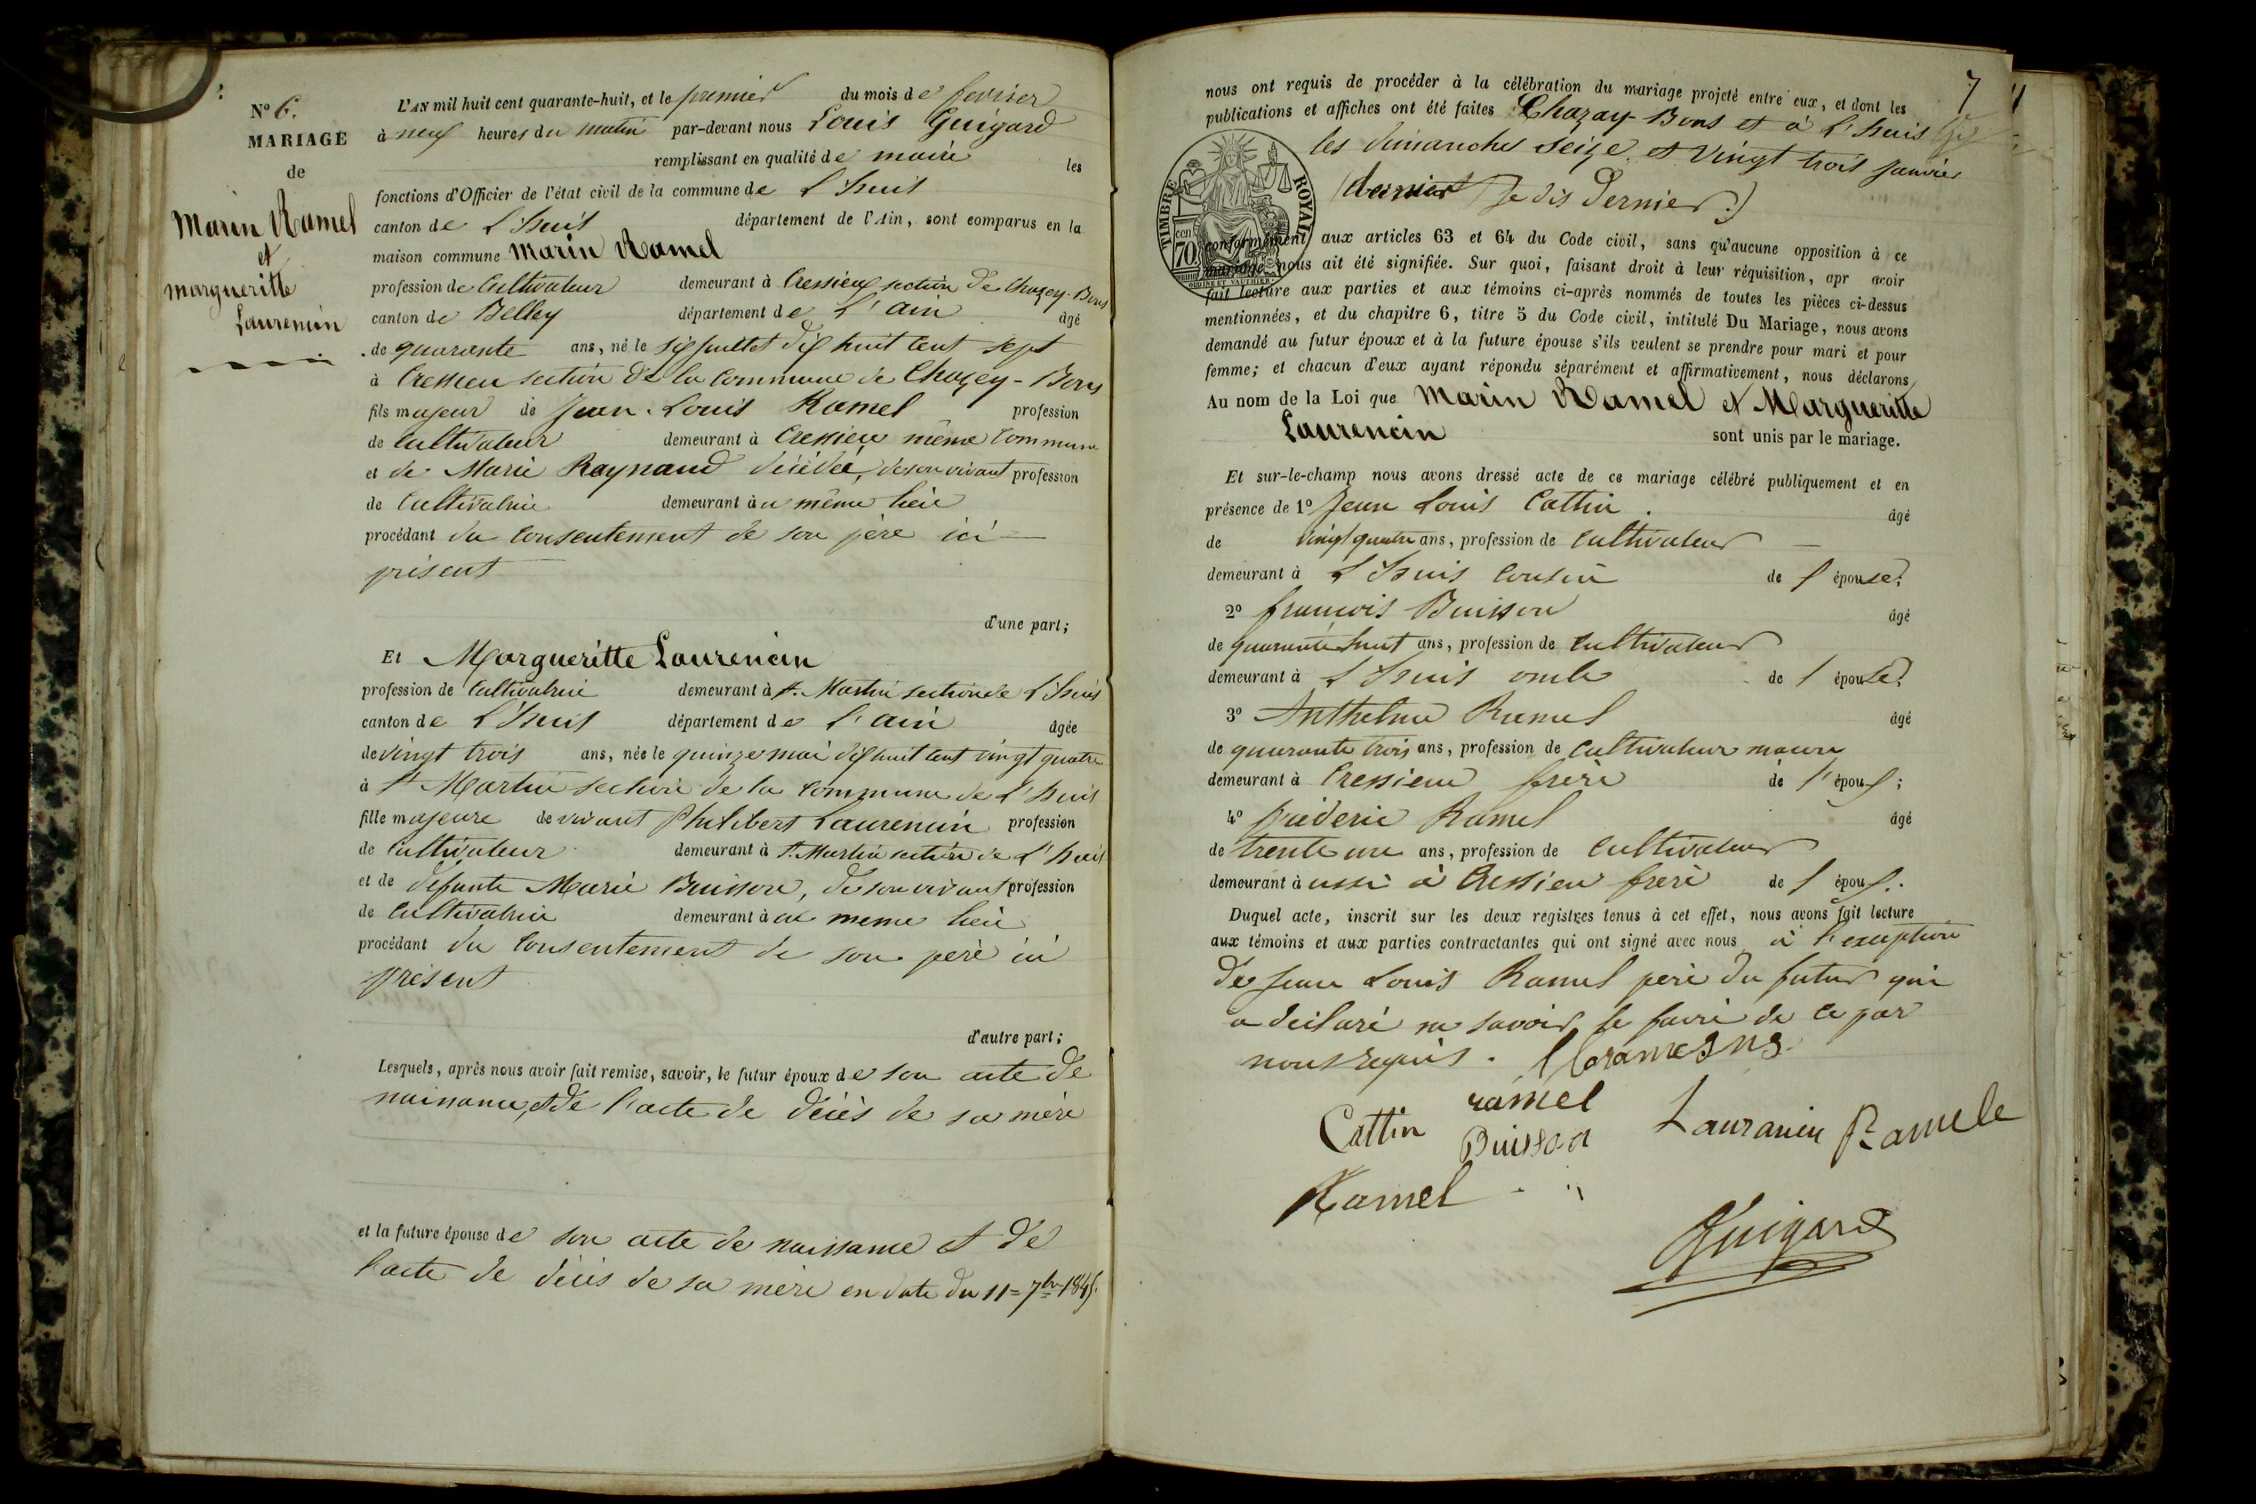 N° 6.
MARIAGE
de
Marin Ramel
et
margueritte
Laurencin
L'AN mil huit cent quarante-huit, et le premier du mois de fevrier
à neuf heures du matin par-devant nous Louis Guigard
remplissant en qualité de maire les
fonctions d'Officier de l'état civil de la commune de L'huis
canton de L'huis département de l'Ain, sont comparus en la
maison commune Marin Ramel
profession de Cultivateur demeurant à Cressieu section de Chazey-Bons
canton de Belley département de L'ain âgé
de quarante ans, né le six juillet dix huit cent sept
à Cressieu section de la Commune de Chazey-Bons
fils majeur de Jean-Louis Ramel profession
de cultivateur demeurant à Cressieu même Commune
et de Marie Raynaud décédée, de son vivant profession
de Cultivatrice demeurant au même lieu
procédant du consentement de son père ici
présent
d'une part;
Et Margueritte Laurencin
profession de Cultivatrice demeurant à St. Martin section de L'huis
canton de L'huis département de L'ain âgée
de vingt trois ans, née le quinze mai dix huit cent vingt quatre
à St Martin section de la Commune de L'huis
fille majeure de vivant Philibert Laurencin profession
de Cultivateur demeurant à St. Martin section de L'huis
et de défunte Marie Buisson, de son vivant profession
de Cultivatrice demeurant à au meme lieu
procédant du Consentement de son père ici
présent
d'autre part;
Lesquels, après nous avoir fait remise, savoir, le futur époux de son acte de
naissance, et de l'acte de décès de sa mère
et la future épouse de son acte de naissance et de
l'acte de décès de sa mère en date du 11 = 7bre 1845.
7
nous ont requis de procéder à la célébration du mariage projeté entre eux, et dont les
publications et affiches ont été faites Chazay-Bons et à L'huis
les dimanches seize et vingt trois janvier
(dernier Je dis Dernier.)
TIMBRE ROYAL
70 cen
conformément aux articles 63 et 64 du Code civil, sans qu'aucune opposition à ce
mariage nous ait été signifiée. Sur quoi, faisant droit à leur réquisition, apr avoir
fait lecture aux parties et aux témoins ci-après nommés de toutes les pièces ci-dessus
mentionnées, et du chapitre 6, titre 5 du Code civil, intitulé Du Mariage, nous avons
demandé au futur époux et à la future épouse s'ils veulent se prendre pour mari et pour
femme; et chacun d'eux ayant répondu séparément et affirmativement, nous déclarons
Au nom de la Loi que Marin Ramel et Margueritte
Laurencin sont unis par le mariage.
Et sur-le-champ nous avons dressé acte de ce mariage célébré publiquement et en
présence de 1° Jean Louis Cattin. âgé
de vingt quatre ans, profession de Cultivateur
demeurant à L'huis cousin de l'épouse;
2° francois Buisson âgé
de quarante huit ans, profession de cultivateur
demeurant à L'huis oncle de l'épouse;
3° Anthelme Ramel âgé
de quarante trois ans, profession de Cultivateur
demeurant à Cressieu frère de l'époux;
4° fréderic Ramel âgé
de trente un ans, profession de Cultivateur
demeurant à ussi à Cressieu frere de l'époux.
Duquel acte, inscrit sur les deux registres tenus à cet effet, nous avons fait lecture
aux témoins et aux parties contractantes qui ont signé avec nous à l'exception
de Jean Louis Ramel père du futur qui
a déclaré ne savoir le faire de ce par
nous requis.
ramel
Cattin Buisson Lauranein Ramele
Ramel
Guigard